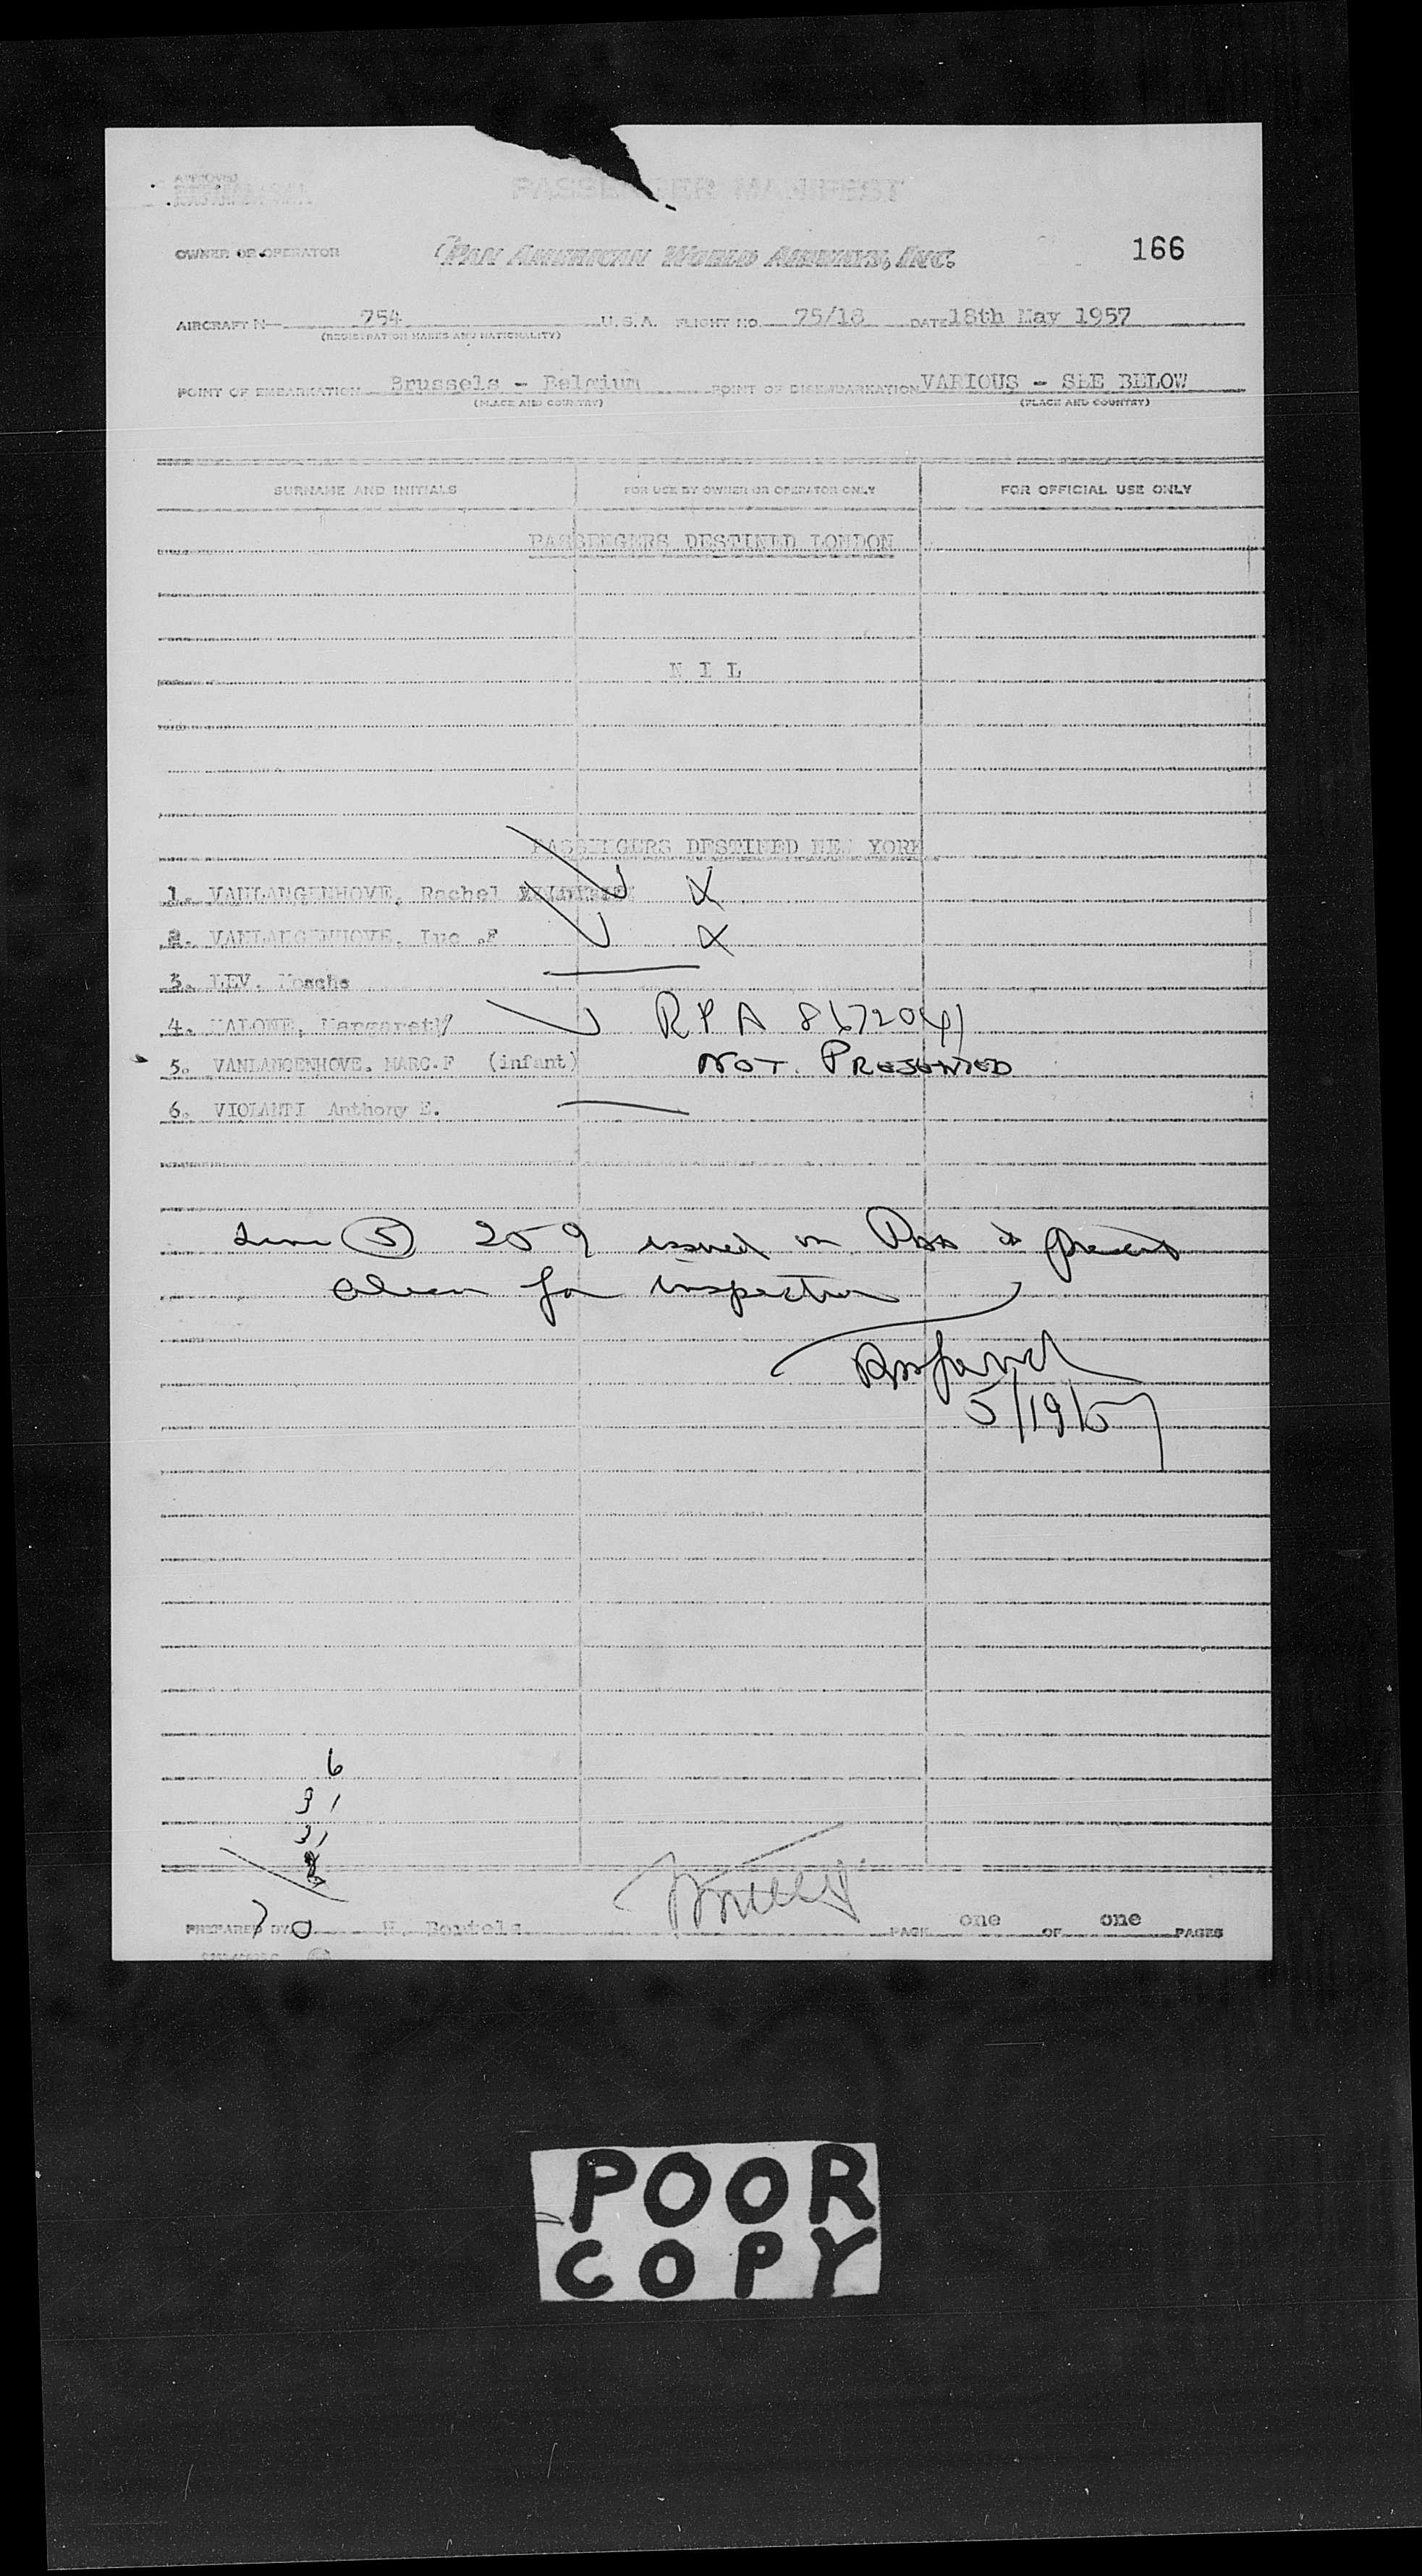 APPROVED
PASSENGER MANIFEST
OWNER OR OPERATOR PAN AMERICAN WORLD AIRWAYS, INC. 166
AIRCRAFT N- 754 U.S.A. FLIGHT NO. 75/18 DATE 18th May 1957
(REGISTRATION MARKS AND NATIONALITY)
POINT OF EMBARKATION Brussels - Belgium POINT OF DISEMBARKATION VARIOUS - SEE BELOW
(PLACE AND COUNTRY) (PLACE AND COUNTRY)
SURNAME AND INITIALS FOR USE BY OWNER OR OPERATOR ONLY FOR OFFICIAL USE ONLY
PASSENGERS DESTINED LONDON
N I L
PASSENGERS DESTINED NEW YORK
1. VANLANGENHOVE, Rachel X
2. VANLANGENHOVE, Luc .F X
3. LEV. Mosche
4. MALONE, Margareth RPA
5. VANLANGENHOVE. MARC.F (infant) NOT. PRESENTED
6. VIOLANTI Anthony E.
Line 5 259 issued on Paa to present
alien for inspection
5/19/57
6
31
31
2
70
PREPARED BY H. Bortels PAGE one OF one PAGES
POOR
COPY